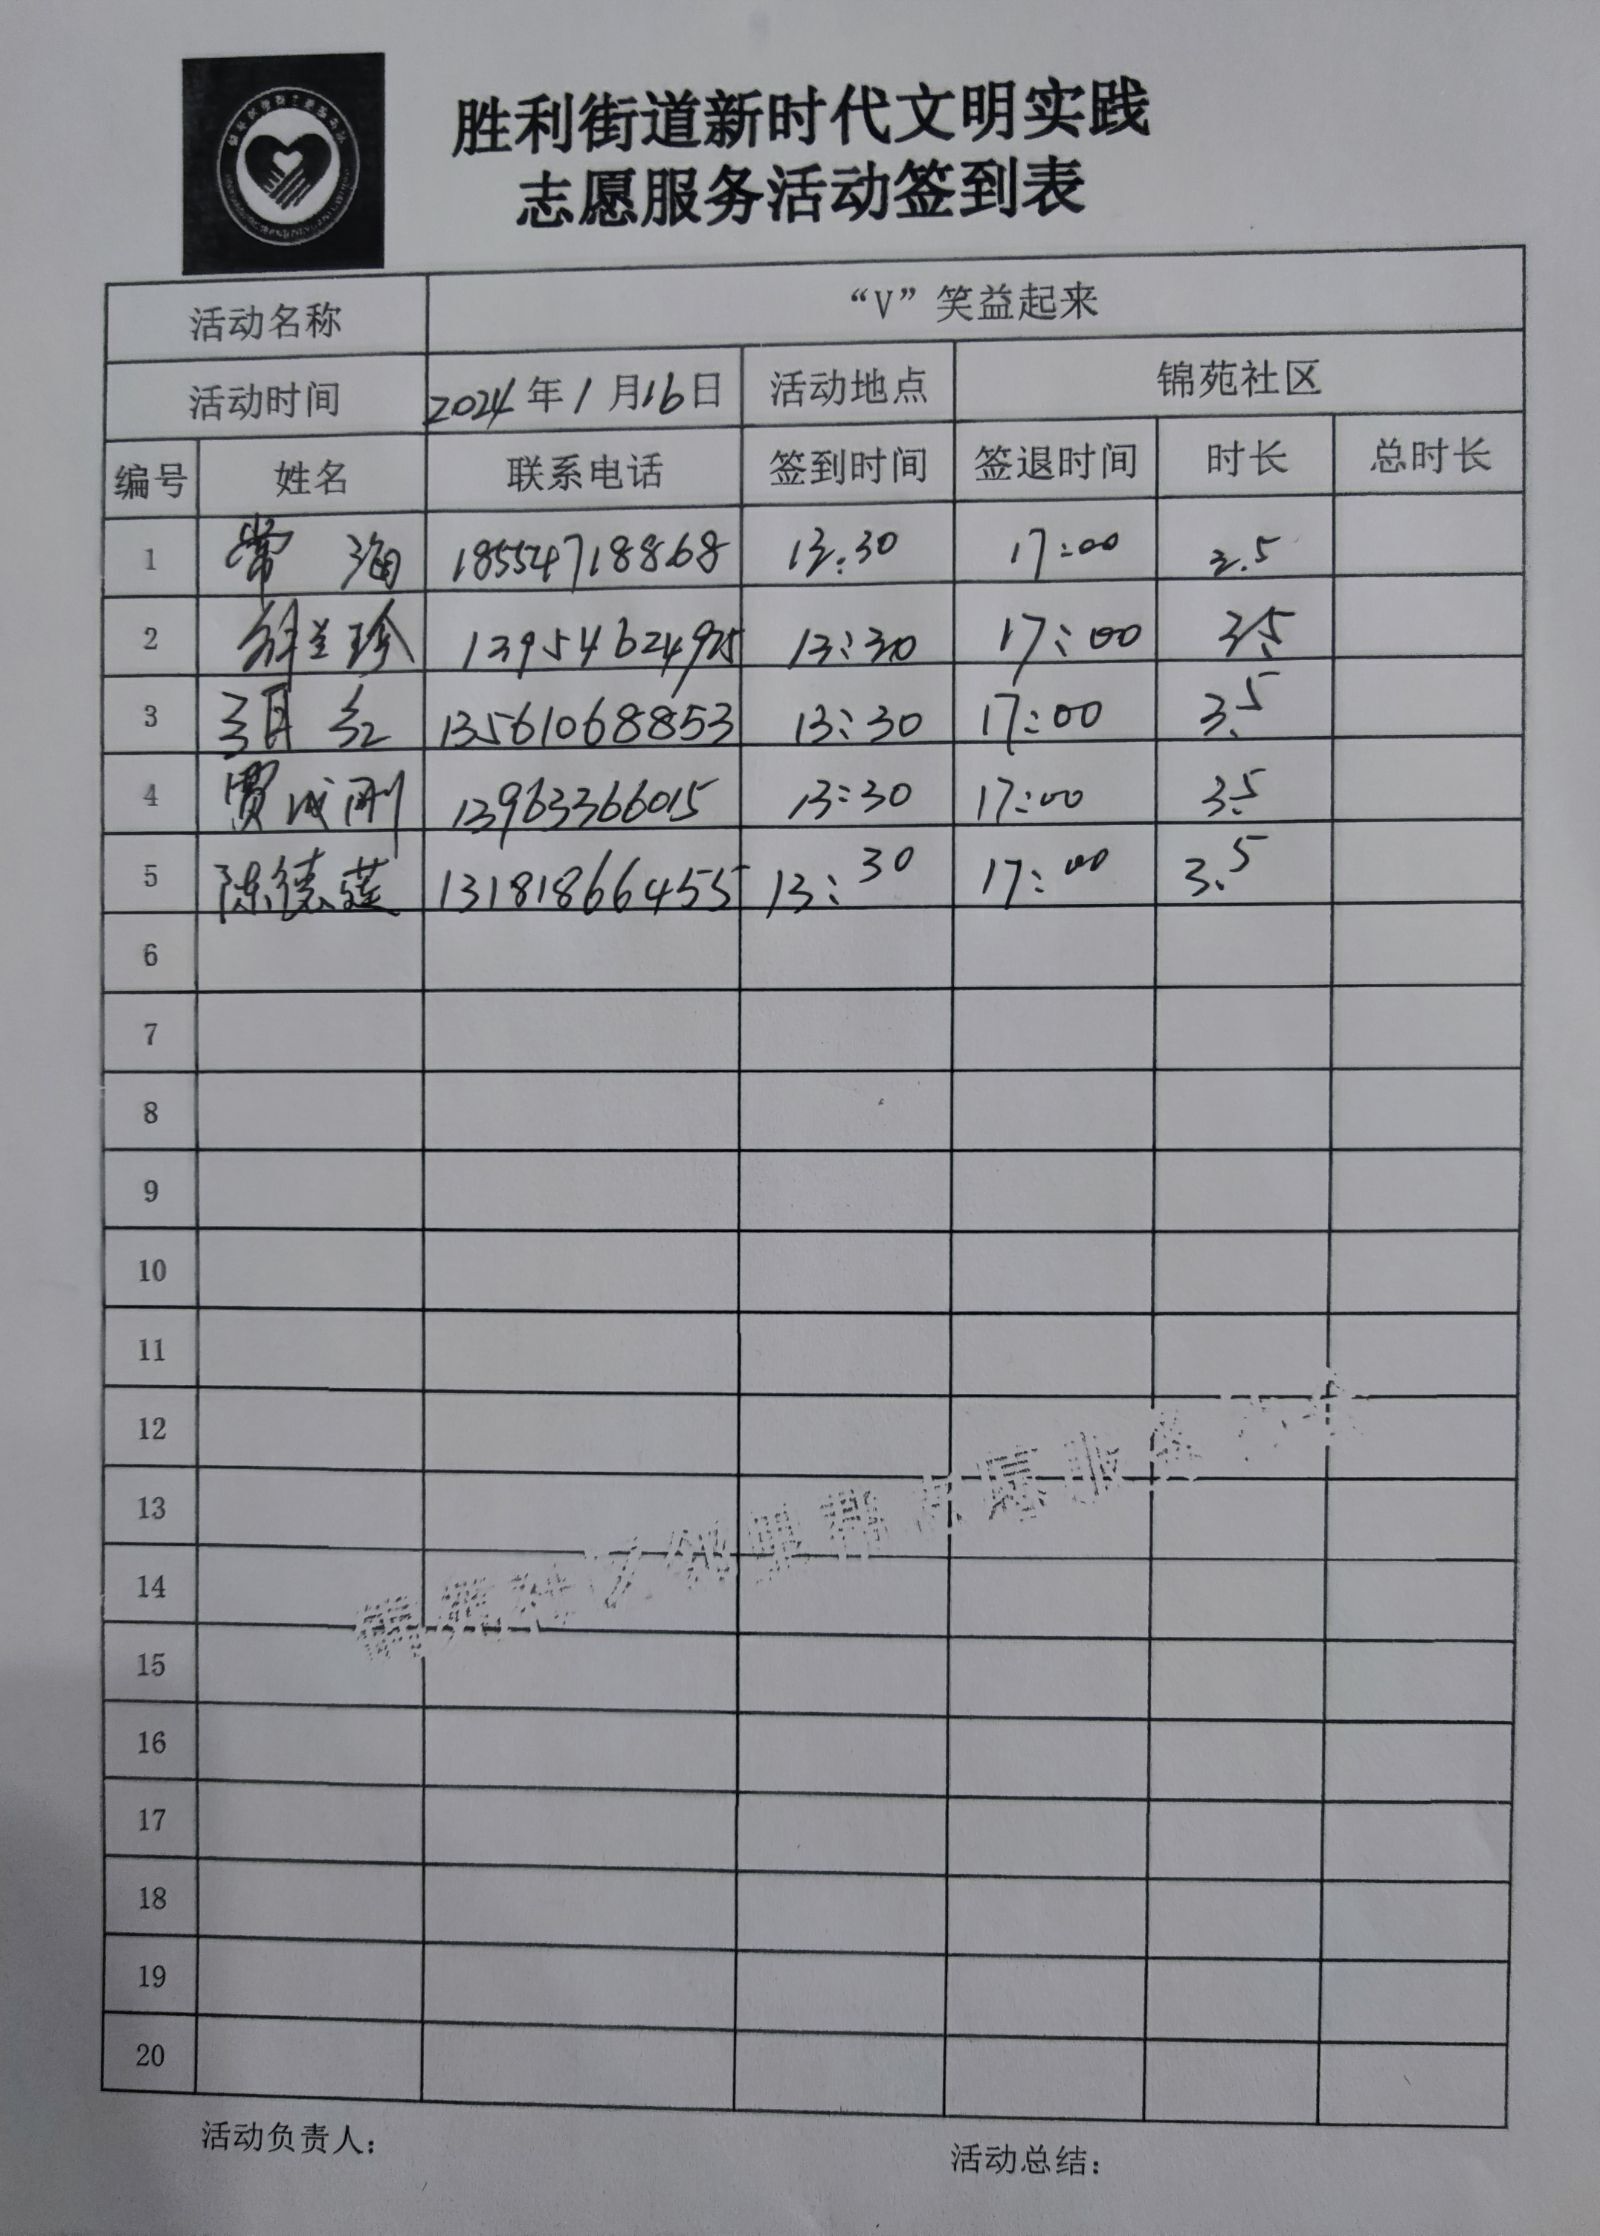 胜利街道新时代文明实践
志愿服务活动签到表
活动名称 “V”笑益起来
活动时间 2024年1月16日 活动地点 锦苑社区
编号 姓名 联系电话 签到时间 签退时间 时长 总时长
1 常海 18554718868 13:30 17:00 3.5
2 兰珍 13954624925 13:30 17:00 3.5
3 红 13561068853 13:30 17:00 3.5
4 贾成刚 13963366015 13:30 17:00 3.5
5 陈德莲 13181866455 13:30 17:00 3.5
6
7
8
9
10
11
12
13
14
15
16
17
18
19
20
活动负责人: 活动总结: